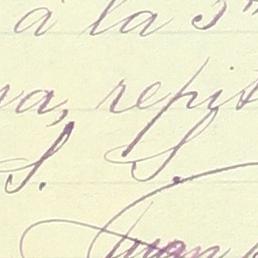 á la 3
va, repit
S. S.
Juan